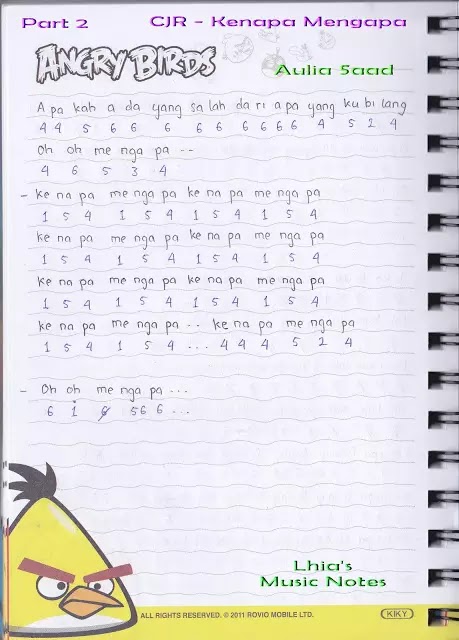 Part 2 CJR - Kenapa Mengapa
ANGRY BIRDS
Aulia Saad
A pa kah a da yang sa lah da ri a pa yang ku bi lang
4 4 5 6 6 6 6 6 6 6 6 6 4 5 2 4
Oh oh me nga pa --
4 6 5 3 4
- ke na pa me nga pa ke na pa me nga pa
1 5 4 1 5 4 1 5 4 1 5 4
ke na pa me nga pa ke na pa me nga pa
1 5 4 1 5 4 1 5 4 1 5 4
ke na pa me nga pa ke na pa me nga pa
1 5 4 1 5 4 1 5 4 1 5 4
ke na pa me nga pa .. ke na pa me nga pa
1 5 4 1 5 4 ... 4 4 4 5 2 4
- Oh oh me nga pa ...
6 1̇ 6 56 6 ...
Lhia's
Music Notes
ALL RIGHTS RESERVED. © 2011 ROVIO MOBILE LTD. KIKY